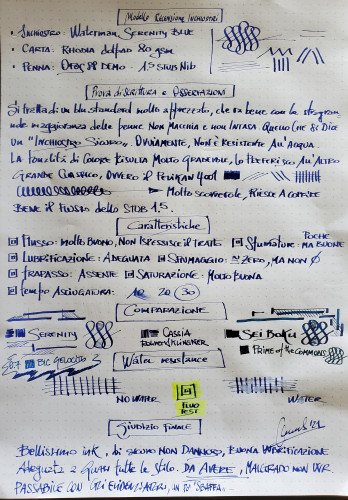 Modello Recensione Inchiostri
• Inchiostro: Waterman Serenity Blue
• Carta: Rhodia dotpad 80 gsm
• Penna: Opus 88 Demo - 1.5 Stub Nib
Prova di scrittura e Osservazioni
Si tratta di un blu standard molto apprezzato, che va bene con la stragran-
de maggioranza delle penne. Non macchia e non intasa. Quello che si dice
un "Inchiostro Sicuro". Ovviamente, non è resistente all'acqua.
La tonalità di colore risulta molto gradevole, lo preferisco all'altro
grande classico, ovvero il Pelikan 4001
Molto scorrevole, riesce a gestire
bene il flusso dello Stub 1.5.
Caratteristiche
Flusso: molto buono, non ispessisce il tratto Sfumature: poche ma buone
Lubrificazione: Adeguata Shimmaggio: ≈ zero, ma non Ø
Trapasso: Assente Saturazione: Molto buona
Tempo Asciugatura: 10 20 30
Comparazione
Serenity Cascia Sei Boku
Prime of the Commons
Bic Gelocity
Water resistance
No water Water
Fluo test
Giudizio Finale
Bellissimo ink, di sicuro non dannoso, buona lubrificazione
Adeguata a quasi tutte le stilo. Da avere, malgrado non WR.
Passabile con gli evidenziatori, un po' sbaffa.